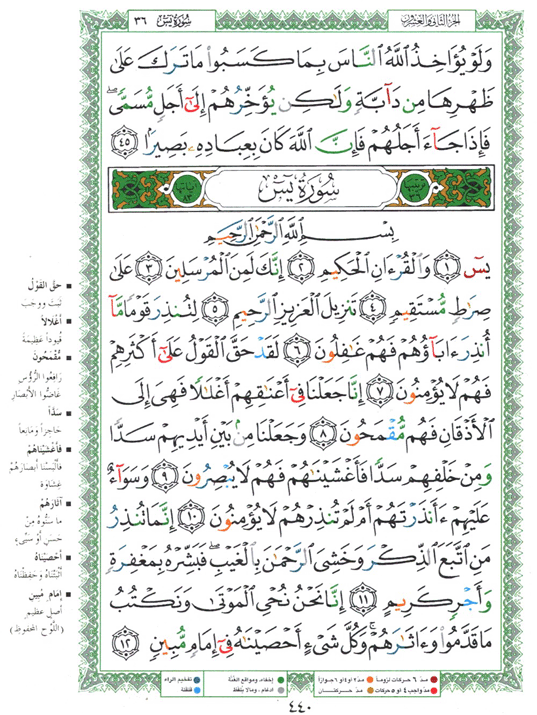 الجزء الثاني والعشرون
سورة يس ٣٦
وَلَوْ يُؤَاخِذُ اللَّهُ النَّاسَ بِمَا كَسَبُوا مَا تَرَكَ عَلَىٰ
ظَهْرِهَا مِن دَابَّةٍ وَلَٰكِن يُؤَخِّرُهُمْ إِلَىٰ أَجَلٍ مُّسَمًّى
فَإِذَا جَاءَ أَجَلُهُمْ فَإِنَّ اللَّهَ كَانَ بِعِبَادِهِ بَصِيرًا ٤٥
ترتيبها ٣٦ سُورَةُ يسٓ آياتها ٨٣
بِسْمِ اللَّهِ الرَّحْمَٰنِ الرَّحِيمِ
يسٓ ١ وَالْقُرْءَانِ الْحَكِيمِ ٢ إِنَّكَ لَمِنَ الْمُرْسَلِينَ ٣ عَلَىٰ
صِرَٰطٍ مُّسْتَقِيمٍ ٤ تَنزِيلَ الْعَزِيزِ الرَّحِيمِ ٥ لِتُنذِرَ قَوْمًا مَّا
أُنذِرَ ءَابَاؤُهُمْ فَهُمْ غَٰفِلُونَ ٦ لَقَدْ حَقَّ الْقَوْلُ عَلَىٰ أَكْثَرِهِمْ
فَهُمْ لَا يُؤْمِنُونَ ٧ إِنَّا جَعَلْنَا فِي أَعْنَٰقِهِمْ أَغْلَٰلًا فَهِيَ إِلَى
الْأَذْقَانِ فَهُم مُّقْمَحُونَ ٨ وَجَعَلْنَا مِن بَيْنِ أَيْدِيهِمْ سَدًّا
وَمِنْ خَلْفِهِمْ سَدًّا فَأَغْشَيْنَٰهُمْ فَهُمْ لَا يُبْصِرُونَ ٩ وَسَوَاءٌ
عَلَيْهِمْ ءَأَنذَرْتَهُمْ أَمْ لَمْ تُنذِرْهُمْ لَا يُؤْمِنُونَ ١٠ إِنَّمَا تُنذِرُ
مَنِ اتَّبَعَ الذِّكْرَ وَخَشِيَ الرَّحْمَٰنَ بِالْغَيْبِ فَبَشِّرْهُ بِمَغْفِرَةٍ
وَأَجْرٍ كَرِيمٍ ١١ إِنَّا نَحْنُ نُحْيِ الْمَوْتَىٰ وَنَكْتُبُ
مَا قَدَّمُوا وَءَاثَٰرَهُمْ وَكُلَّ شَيْءٍ أَحْصَيْنَٰهُ فِي إِمَامٍ مُّبِينٍ ١٢
■ حقَّ القَوْلُ
ثبَتَ ووجب
■ أغْلالاً
قُيوداً عظيمةً
■ مُقْمَحُونَ
رَافِعُوا الرُّؤُس
غَاضُّوا الأبْصَار
■ سَدّاً
حَاجزاً وَمَانِعاً
■ فأغْشيْنَاهُمْ
فألبَسْنَا أبْصارَهُمْ
غِشَاوَة
■ آثَارَهُمْ
ما سَنُّوهُ مِنْ
حَسَنٍ أوْ سَيِّيءٍ
■ أحْصَيْنَاهُ
أثبَتْنَاهُ وحَفِظْنَاهُ
■ إمَام مُبين
أصل عظيم
(اللَّوْح المَحْفوظ)
مدّ ٦ حركات لزوماً
مدّ ٢ أو ٤ أو ٦ جوازاً
إخفاء، ومواقع الغُنَّة
تفخيم الراء
مدّ واجب ٤ أو ٥ حركات
مدّ حركتان
ادغام، وما لا يُلفَظ
قلقلة
٤٤٠